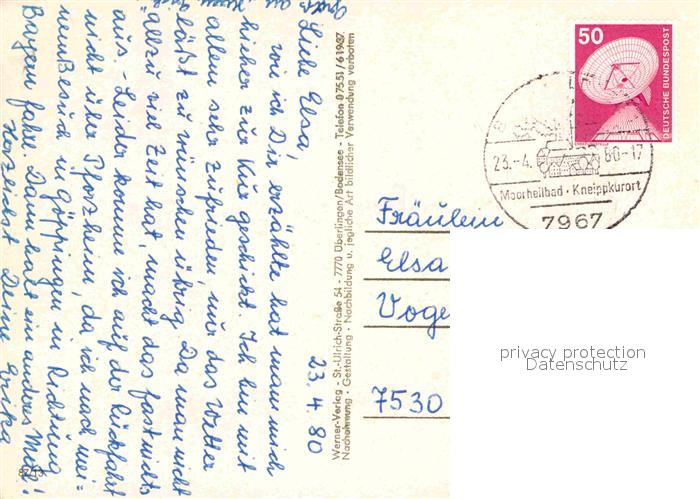 Liebe Elsa,
wie ich Dir erzählte hat man mich
hierher zur Kur geschickt. Ich bin mit
allem sehr zufrieden, nur das Wetter
läßt zu wünschen übrig. Da man nicht
allzu viel Zeit hat, macht das fast nichts
aus. - Leider komme ich auf der Rückfahrt
nicht über Pforzheim, da ich nach mei=
nem Besuch in Göppingen in Richtung
Bayern fahre. Dann halt ein anderes Mal!
Herzlichst Deine Erika
23.4.80
87/13
Werner-Verlag - St.-Ulrich-Straße 54 - 7770 Überlingen/Bodensee - Telefon 07551/61937
Nachahmung · Gestaltung · Nachbildung u. jegliche Art bildlicher Verwendung verboten
50
DEUTSCHE BUNDESPOST
23.-4.80-17
Moorheilbad · Kneippkurort
7967
Fräulein
Elsa
Voge
7530
privacy protection
Datenschutz